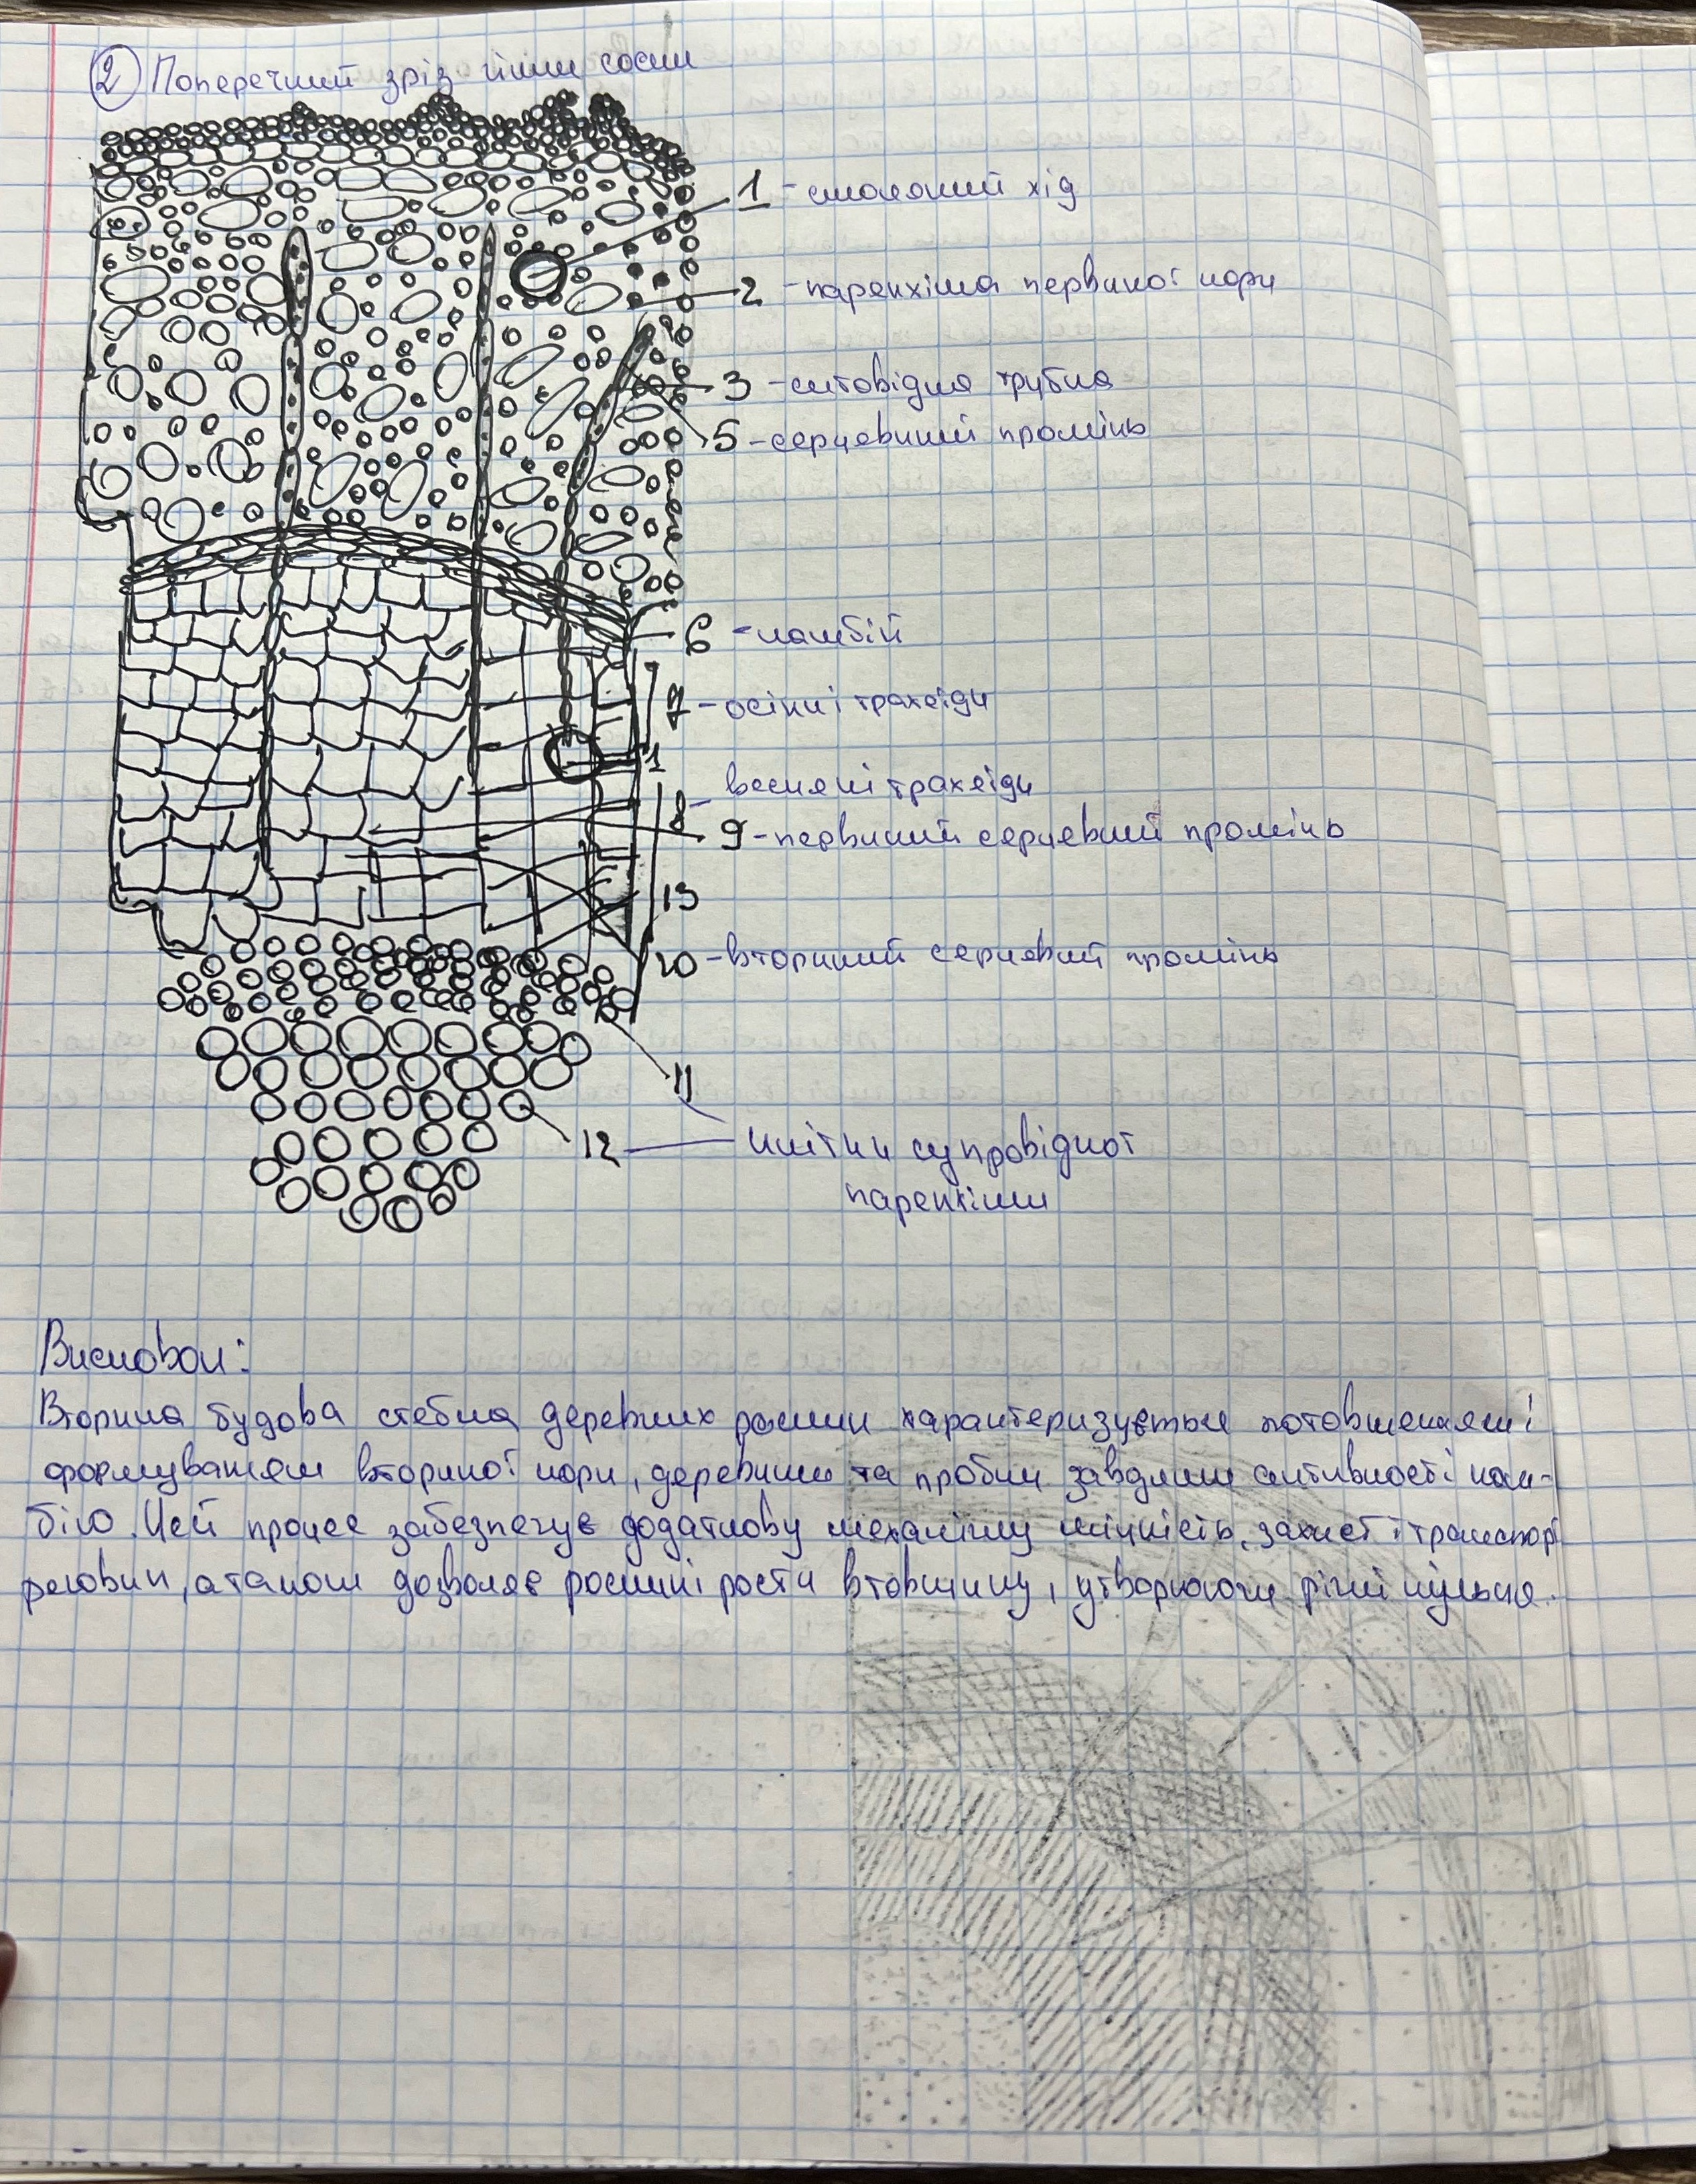 2 Поперечний зріз гілки сосни
1 - смоляний хід
2 - паренхіма первиної кори
3 - ситовідна трубка
5 - серцевиний промінь
6 - камбій
7 - осінні трахеїди
1
8 - весняні трахеїди
9 - первиний серцевий промінь
13
10 - вториний серцевий промінь
11
12 - клітин супровідної
паренхіми
Висновок:
Вторина будова стебла деревних рослин характеризується потовщенням і
формуванням вториної кори, деревини та пробки завдяки активності кам-
бію. Цей процес забезпечує додаткову механічну міцність, захист і транспорт
речовин, а також дозволяє рослині рости втовщину, утворюючи річні кільця.